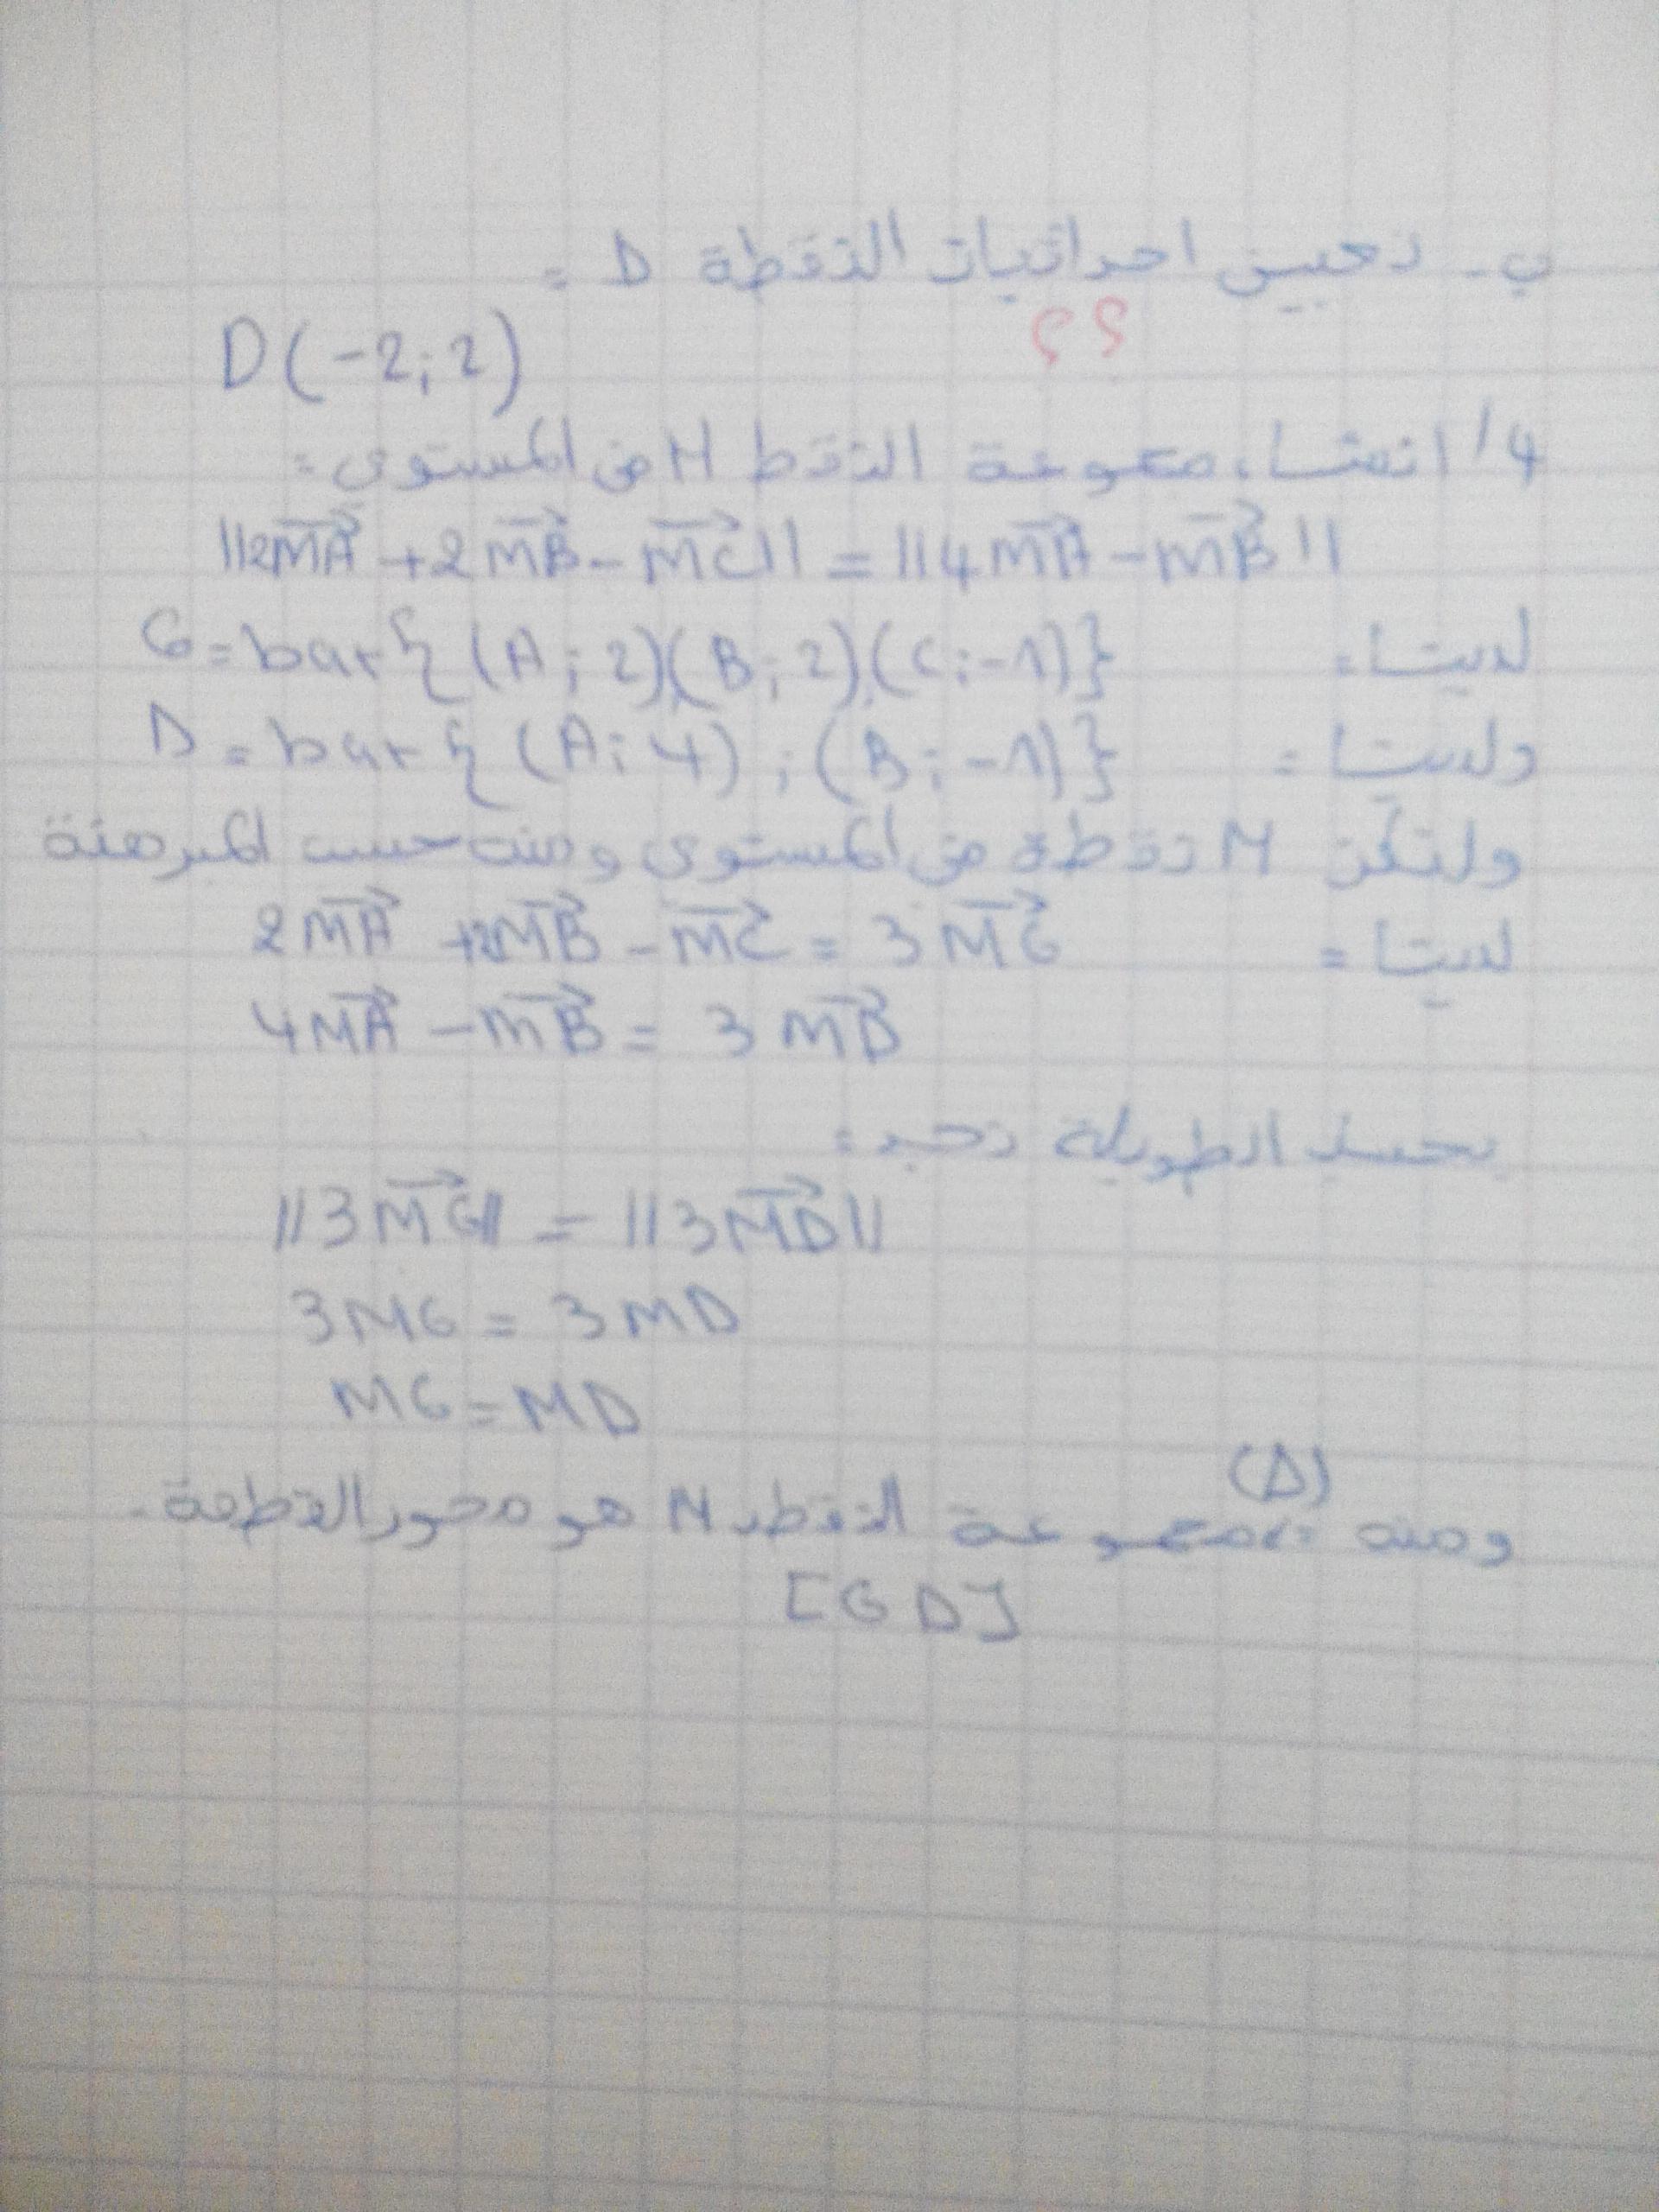 ب - تعيين احداثيات النقطة D =
؟؟
D(-2;2)
4/ انشاء مجموعة النقط M من المستوي =
||2MA + 2MB - MC|| = ||4MA - MB||
لدينا = G = bar{(A;2)(B;2),(C;-1)}
ولدينا = D = bar{(A;4);(B;-1)}
ولتكن M نقطة من المستوي ومنه حسب المبرهنة
لدينا = 2MA + 2MB - MC = 3MG
4MA - MB = 3MD
الطويلة نجد =
||3MG|| = ||3MD||
3MG = 3MD
MG = MD
(Δ)
ومنه مجموعة النقط M هو محور القطعة .
[GD]